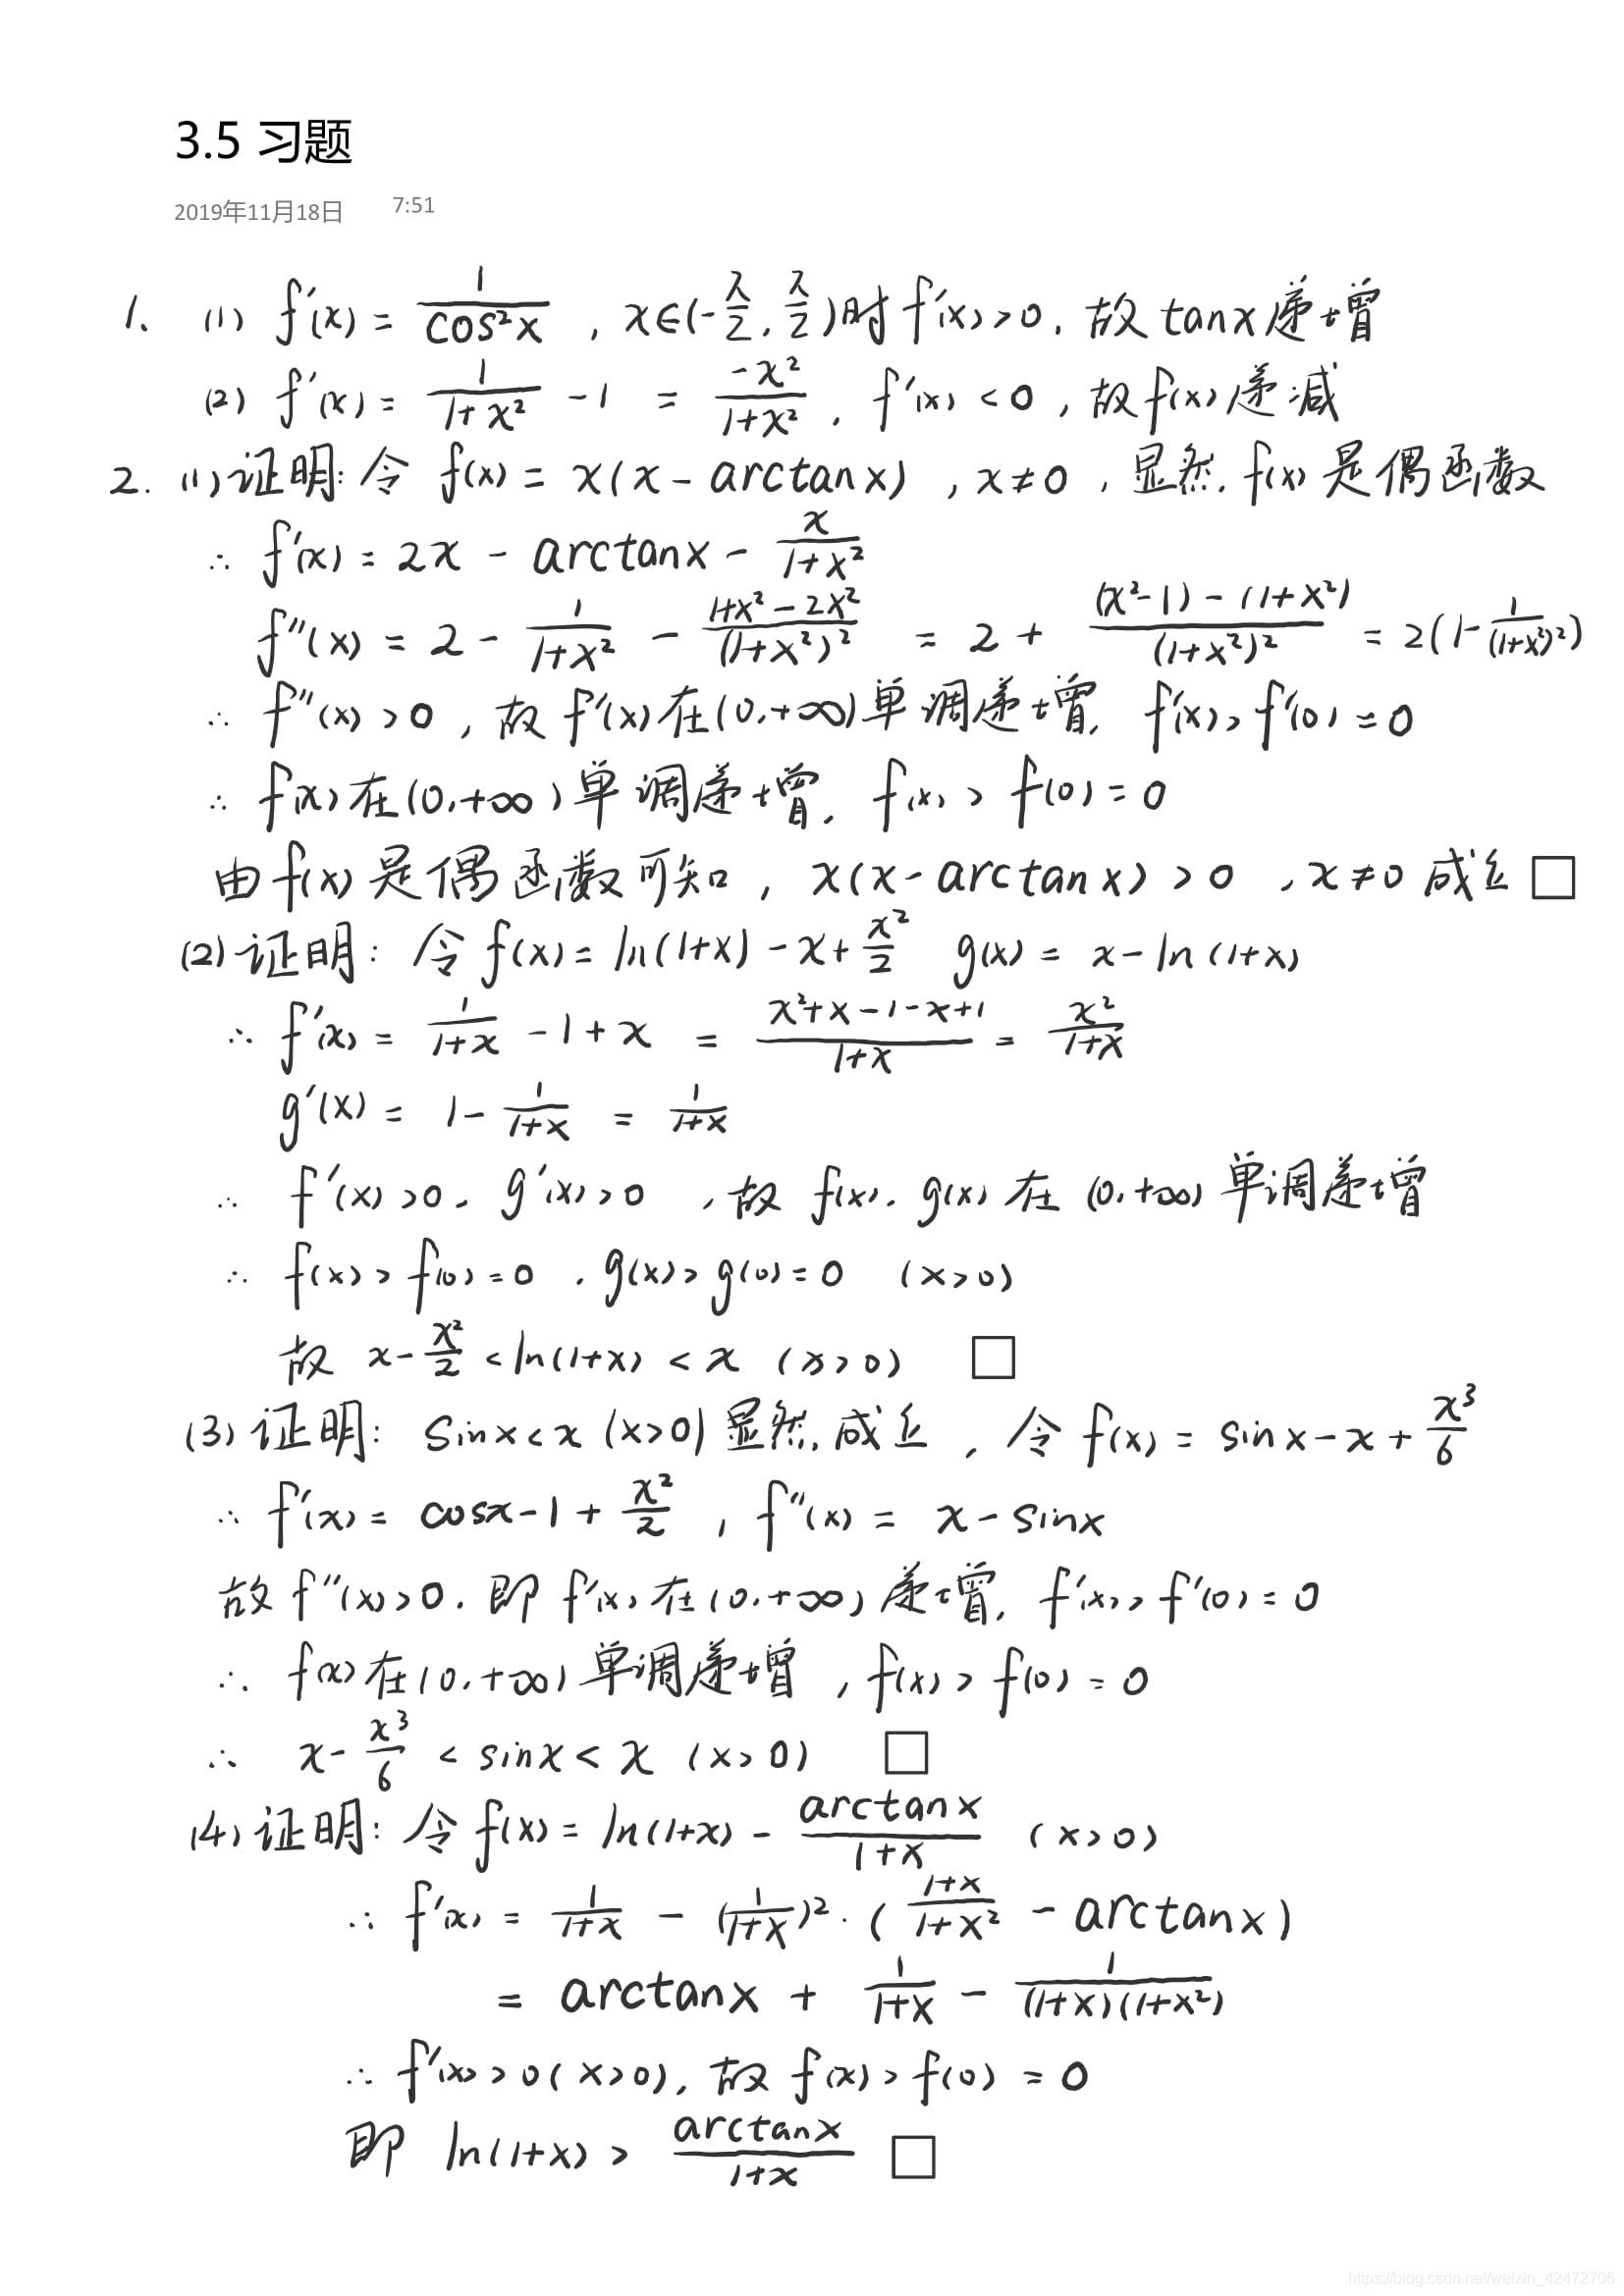 3.5 习题
2019年11月18日 7:51
1. (1) f'(x) = 1/cos²x , x∈(-π/2, π/2)时 f'(x)>0, 故 tanx 递增
(2) f'(x) = 1/(1+x²) - 1 = -x²/(1+x²), f'(x) < 0, 故f(x)递减
2. (1) 证明: 令 f(x) = x(x - arctanx) , x≠0 , 显然, f(x) 是偶函数
∴ f'(x) = 2x - arctanx - x/(1+x²)
f''(x) = 2 - 1/(1+x²) - (1+x²-2x²)/(1+x²)² = 2 + ((x²-1)-(1+x²))/(1+x²)² = 2(1-1/(1+x²)²)
∴ f''(x) > 0 , 故 f'(x) 在(0,+∞)单调递增, f'(x) > f'(0) = 0
∴ f(x) 在(0,+∞)单调递增, f(x) > f(0) = 0
由 f(x) 是偶函数可知 , x(x-arctanx) > 0 , x≠0 成立 □
(2) 证明: 令 f(x) = ln(1+x) - x + x²/2 g(x) = x - ln(1+x)
∴ f'(x) = 1/(1+x) - 1 + x = (x²+x-1-x+1)/(1+x) = x²/(1+x)
g'(x) = 1 - 1/(1+x) = 1/(1+x)
∴ f'(x) > 0, g'(x) > 0 , 故 f(x), g(x) 在 (0,+∞) 单调递增
∴ f(x) > f(0) = 0 , g(x) > g(0) = 0 (x>0)
故 x - x²/2 < ln(1+x) < x (x>0) □
(3) 证明: sinx < x (x>0) 显然, 成立 , 令 f(x) = sinx - x + x³/6
∴ f'(x) = cosx - 1 + x²/2 , f''(x) = x - sinx
故 f''(x) > 0, 即 f'(x) 在(0,+∞)递增, f'(x) > f'(0) = 0
∴ f(x) 在(0,+∞)单调递增 , f(x) > f(0) = 0
∴ x - x³/6 < sinx < x (x>0) □
(4) 证明: 令 f(x) = ln(1+x) - arctanx/(1+x) (x>0)
∴ f'(x) = 1/(1+x) - (1/(1+x))²·((1+x)/(1+x²) - arctanx)
= arctanx + 1/(1+x) - 1/((1+x)(1+x²))
∴ f'(x) > 0 (x>0), 故 f(x) > f(0) = 0
即 ln(1+x) > arctanx/(1+x) □
https://blog.csdn.net/weixin_42472706